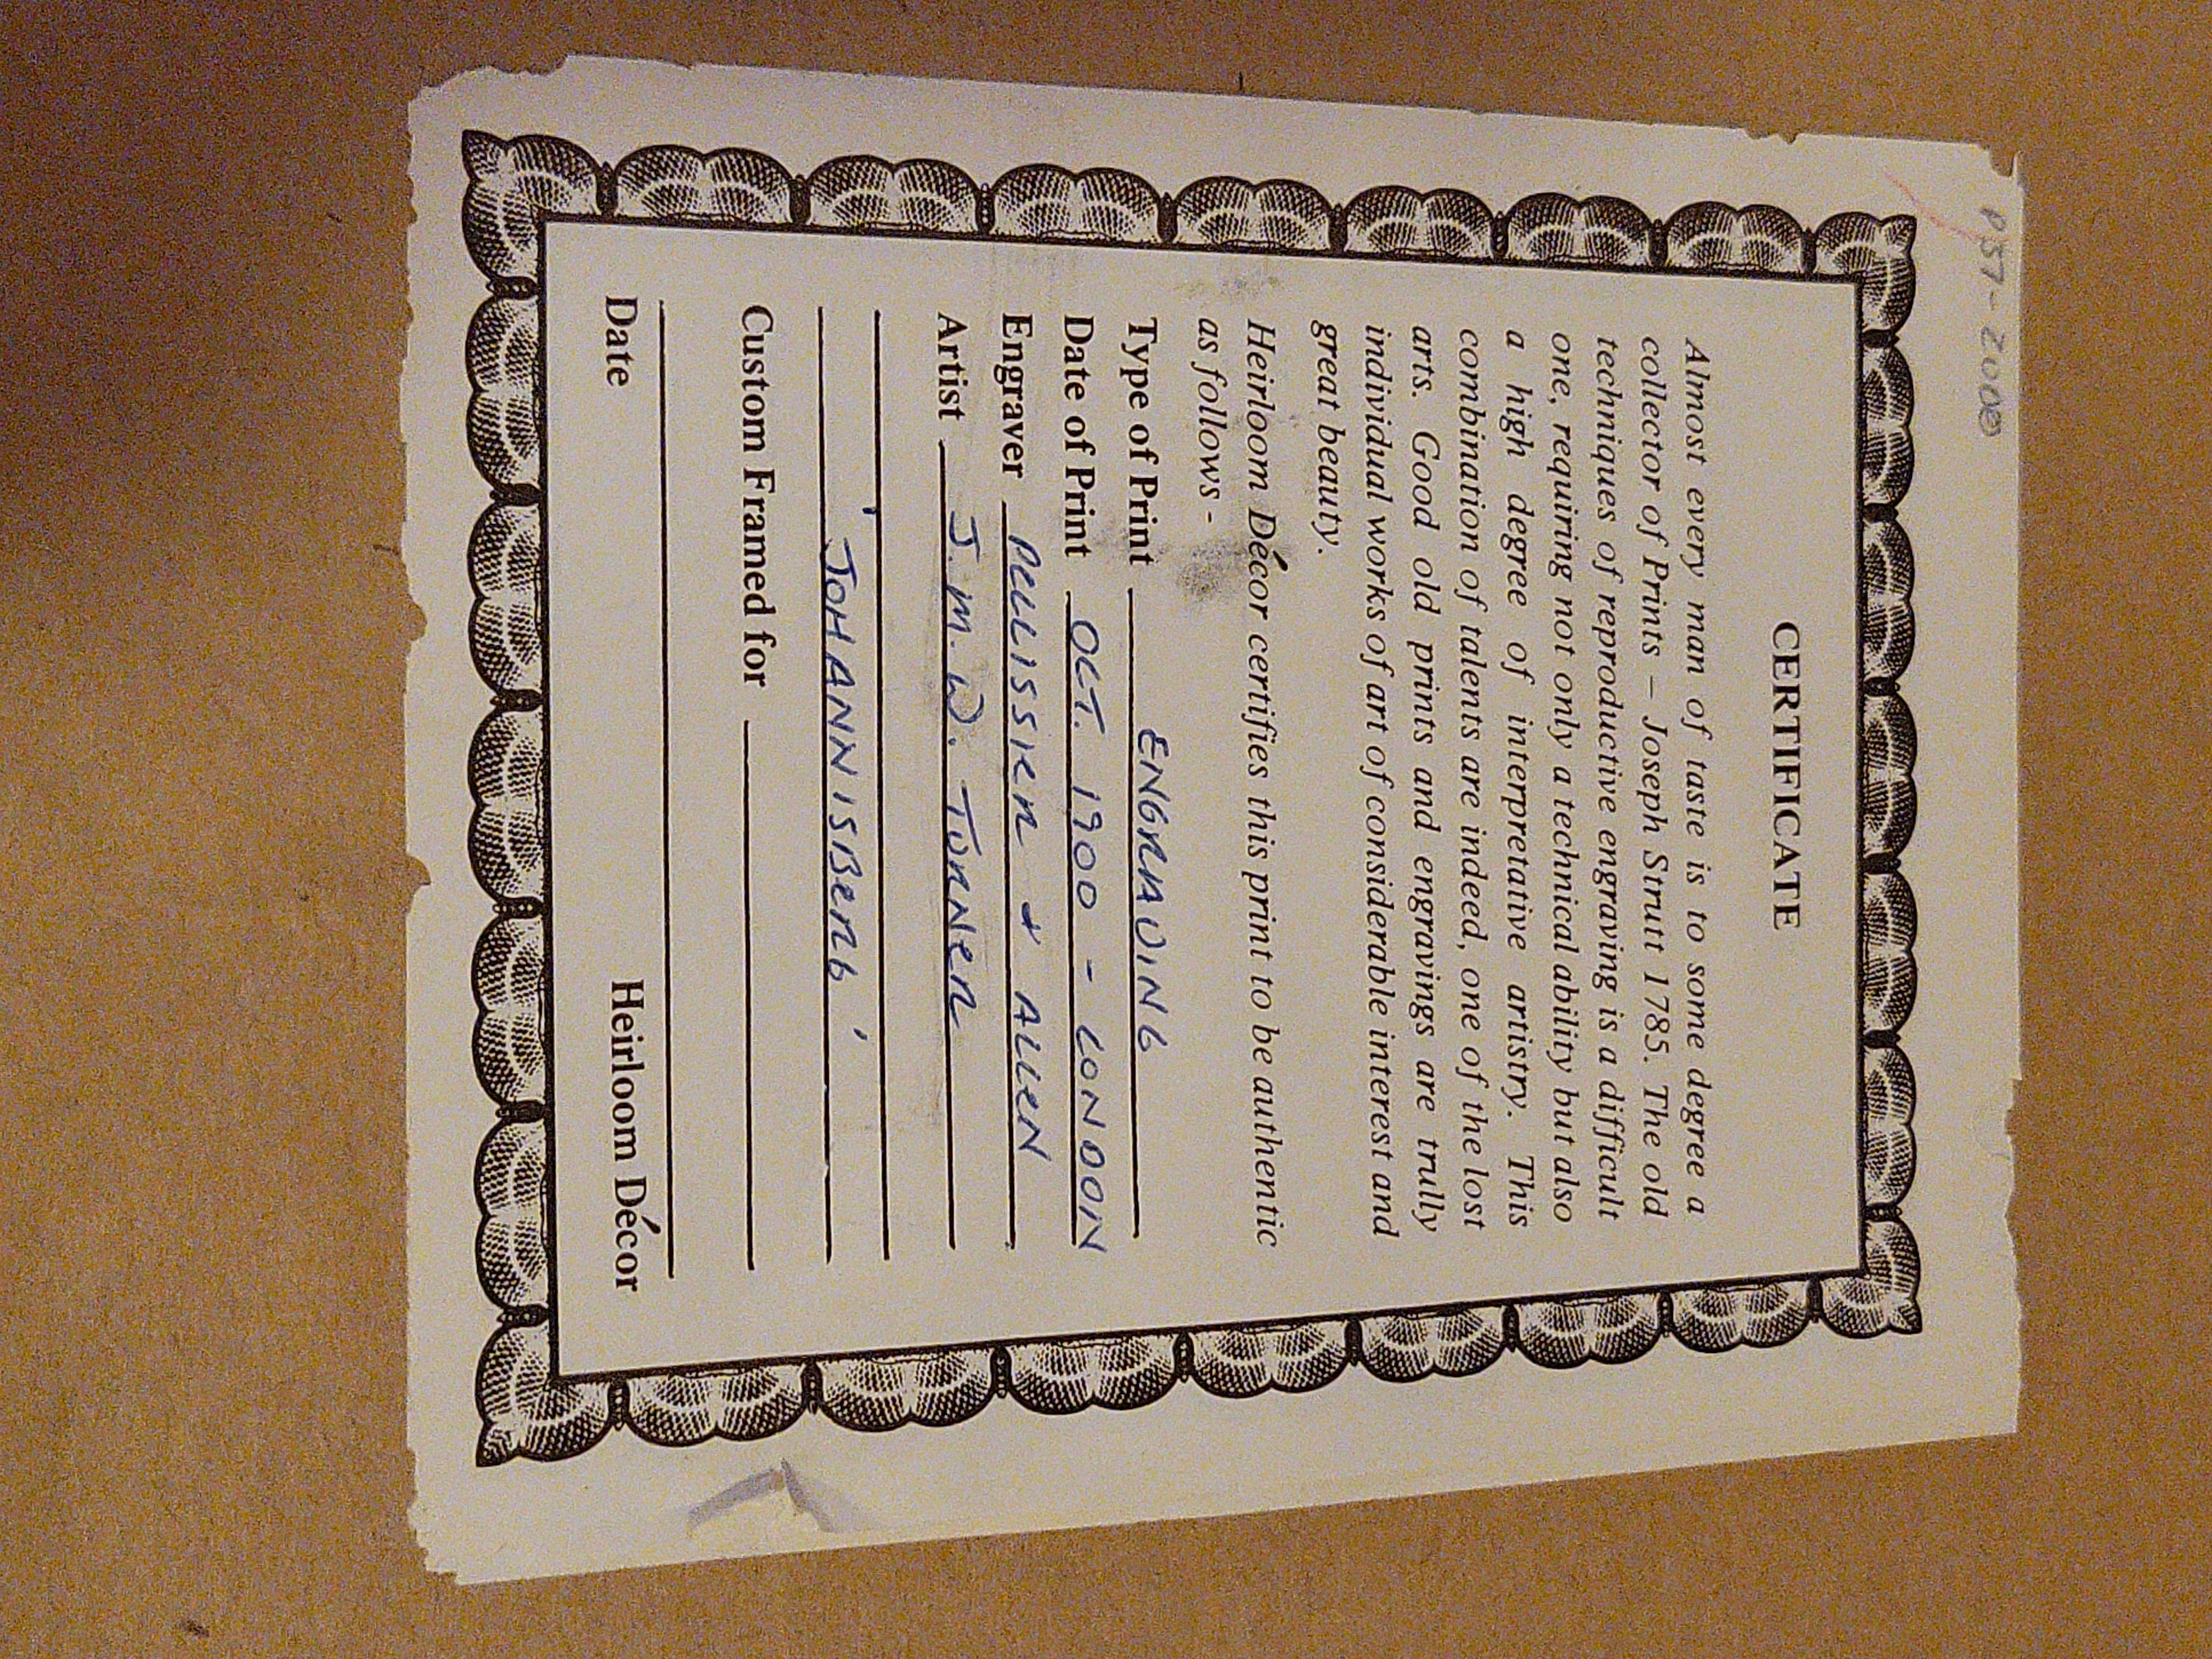 P57-2000
CERTIFICATE
Almost every man of taste is to some degree a
collector of Prints – Joseph Strutt 1785. The old
techniques of reproductive engraving is a difficult
one, requiring not only a technical ability but also
a high degree of interpretative artistry. This
combination of talents are indeed, one of the lost
arts. Good old prints and engravings are trully
individual works of art of considerable interest and
great beauty.
Heirloom Décor certifies this print to be authentic
as follows -
Type of Print ENGRAVING
Date of Print OCT. 1900 - LONDON
Engraver PELLISSIER + ALLEN
Artist J. M. W. TURNER
'JOHANNISBERG'
Custom Framed for
Date Heirloom Décor